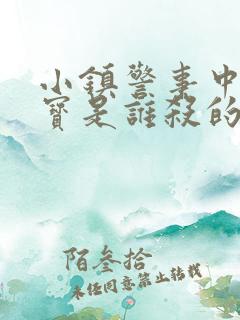 小鎮警事中
寶是誰殺的
陌叁拾
未任同意禁止转载